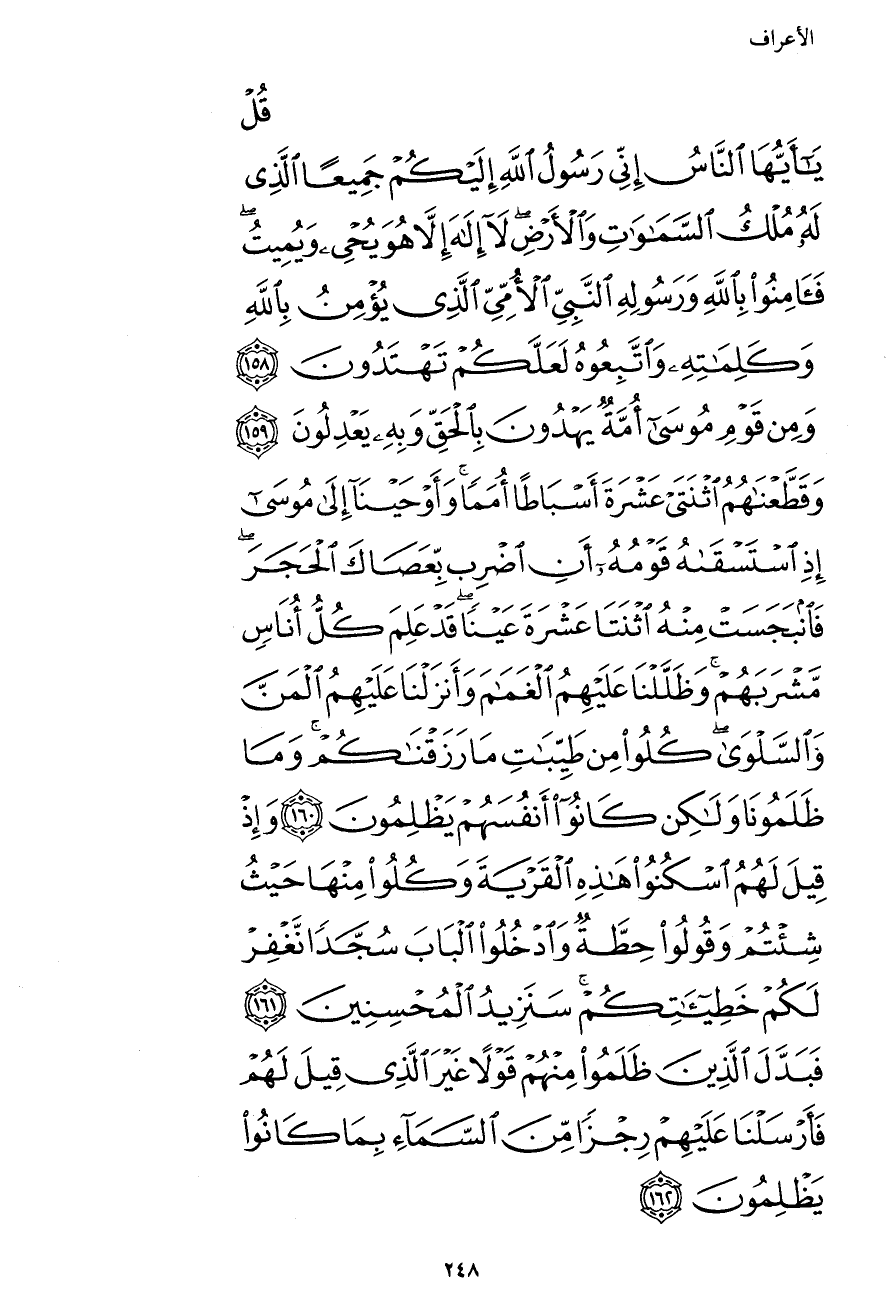 الأعراف
قُلۡ
يَٰٓأَيُّهَا ٱلنَّاسُ إِنِّي رَسُولُ ٱللَّهِ إِلَيۡكُمۡ جَمِيعًا ٱلَّذِي
لَهُۥ مُلۡكُ ٱلسَّمَٰوَٰتِ وَٱلۡأَرۡضِۖ لَآ إِلَٰهَ إِلَّا هُوَ يُحۡيِۦ وَيُمِيتُۖ
فَـَٔامِنُواْ بِٱللَّهِ وَرَسُولِهِ ٱلنَّبِيِّ ٱلۡأُمِّيِّ ٱلَّذِي يُؤۡمِنُ بِٱللَّهِ
وَكَلِمَٰتِهِۦ وَٱتَّبِعُوهُ لَعَلَّكُمۡ تَهۡتَدُونَ ١٥٨
وَمِن قَوۡمِ مُوسَىٰٓ أُمَّةٞ يَهۡدُونَ بِٱلۡحَقِّ وَبِهِۦ يَعۡدِلُونَ ١٥٩
وَقَطَّعۡنَٰهُمُ ٱثۡنَتَيۡ عَشۡرَةَ أَسۡبَاطًا أُمَمٗاۚ وَأَوۡحَيۡنَآ إِلَىٰ مُوسَىٰٓ
إِذِ ٱسۡتَسۡقَىٰهُ قَوۡمُهُۥٓ أَنِ ٱضۡرِب بِّعَصَاكَ ٱلۡحَجَرَۖ
فَٱنۢبَجَسَتۡ مِنۡهُ ٱثۡنَتَا عَشۡرَةَ عَيۡنٗاۖ قَدۡ عَلِمَ كُلُّ أُنَاسٖ
مَّشۡرَبَهُمۡۚ وَظَلَّلۡنَا عَلَيۡهِمُ ٱلۡغَمَٰمَ وَأَنزَلۡنَا عَلَيۡهِمُ ٱلۡمَنَّ
وَٱلسَّلۡوَىٰۖ كُلُواْ مِن طَيِّبَٰتِ مَا رَزَقۡنَٰكُمۡۚ وَمَا
ظَلَمُونَا وَلَٰكِن كَانُوٓاْ أَنفُسَهُمۡ يَظۡلِمُونَ ١٦٠ وَإِذۡ
قِيلَ لَهُمُ ٱسۡكُنُواْ هَٰذِهِ ٱلۡقَرۡيَةَ وَكُلُواْ مِنۡهَا حَيۡثُ
شِئۡتُمۡ وَقُولُواْ حِطَّةٞ وَٱدۡخُلُواْ ٱلۡبَابَ سُجَّدٗا نَّغۡفِرۡ
لَكُمۡ خَطِيٓـَٰٔتِكُمۡۚ سَنَزِيدُ ٱلۡمُحۡسِنِينَ ١٦١
فَبَدَّلَ ٱلَّذِينَ ظَلَمُواْ مِنۡهُمۡ قَوۡلًا غَيۡرَ ٱلَّذِي قِيلَ لَهُمۡ
فَأَرۡسَلۡنَا عَلَيۡهِمۡ رِجۡزٗا مِّنَ ٱلسَّمَآءِ بِمَا كَانُواْ
يَظۡلِمُونَ ١٦٢
٢٤٨